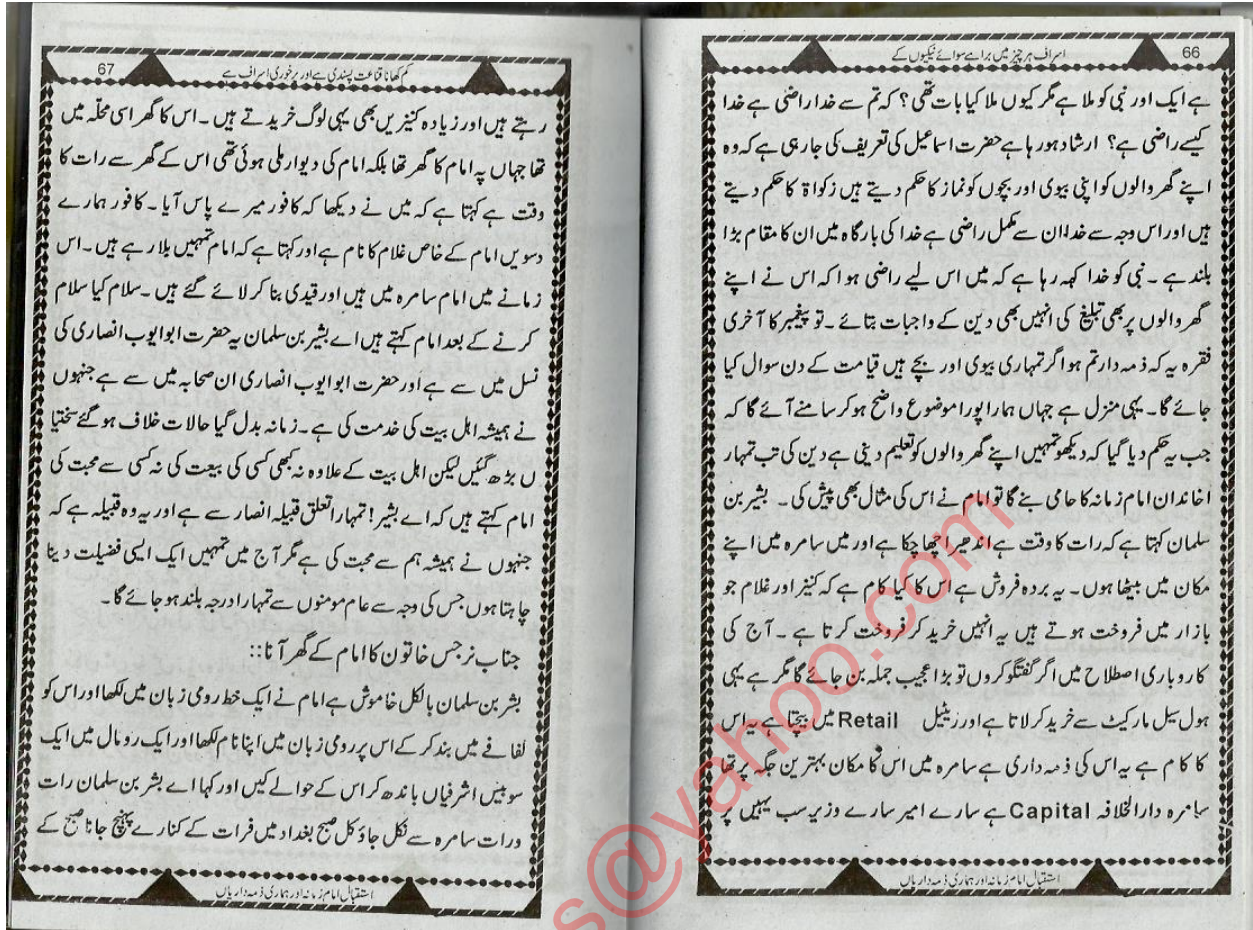 66
اسراف ہر چیز میں برا ہے سوائے نیکیوں کے
ہے ایک اور نبی کو ملا ہے مگر کیوں ملا کیا بات تھی؟ کہ تم سے خدا راضی ہے خدا
کیسے راضی ہے؟ ارشاد ہو رہا ہے حضرت اسماعیل کی تعریف کی جارہی ہے کہ وہ
اپنے گھر والوں کو اپنی بیوی اور بچوں کو نماز کا حکم دیتے ہیں زکواۃ کا حکم دیتے
ہیں اور اس وجہ سے خدا ان سے مکمل راضی ہے خدا کی بارگاہ میں ان کا مقام بڑا
بلند ہے۔ نبی کو خدا کہہ رہا ہے کہ میں اس لیے راضی ہوا کہ اس نے اپنے
گھر والوں پر بھی تبلیغ کی انہیں بھی دین کے واجبات بتائے۔ تو پیغمبر کا آخری
فقرہ یہ کہ ذمہ دار تم ہو اگر تمہاری بیوی اور بچے ہیں قیامت کے دن سوال کیا
جائے گا۔ یہی منزل ہے جہاں ہمارا پورا موضوع واضح ہو کر سامنے آئے گا کہ
جب یہ حکم دیا گیا کہ دیکھو تمہیں اپنے گھر والوں کو تعلیم دینی ہے دین کی تب تمہار
ا خاندان امام زمانہ کا حامی بنے گا تو امام نے اس کی مثال بھی پیش کی۔ بشیر بن
سلمان کہتا ہے کہ رات کا وقت ہے اندھیرا چھا چکا ہے اور میں سامرہ میں اپنے
مکان میں بیٹھا ہوں۔ یہ بردہ فروش ہے اس کا کیا کام ہے کہ کنیز اور غلام جو
بازار میں فروخت ہوتے ہیں یہ انہیں خرید کر فروخت کرتا ہے۔ آج کی
کاروباری اصطلاح میں اگر گفتگو کروں تو بڑا عجیب جملہ بن جائے گا مگر ہے یہی
ہول سیل مارکیٹ سے خرید کر لاتا ہے اور ریٹیل Retail میں بیچتا ہے یہ اس
کا کام ہے یہ اس کی ذمہ داری ہے سامرہ میں اس کا مکان بہترین جگہ پر تھا
سامرہ دارالخلافہ Capital ہے سارے امیر سارے وزیر سب یہیں پر
استقبال امام زمانہ اور ہماری ذمہ داریاں
67
کم کھانا قناعت پسندی ہے اور پرخوری اسراف ہے
رہتے ہیں اور زیادہ کنیزیں بھی یہی لوگ خریدتے ہیں۔ اس کا گھر اسی محلّہ میں
تھا جہاں پہ امام کا گھر تھا بلکہ امام کی دیوار ملی ہوئی تھی اس کے گھر سے رات کا
وقت ہے کہتا ہے کہ میں نے دیکھا کہ کافور میرے پاس آیا۔ کافور ہمارے
دسویں امام کے خاص غلام کا نام ہے اور کہتا ہے کہ امام تمہیں بلا رہے ہیں۔ اس
زمانے میں امام سامرہ میں ہیں اور قیدی بنا کر لائے گئے ہیں۔ سلام کیا سلام
کرنے کے بعد امام کہتے ہیں اے بشیر بن سلمان یہ حضرت ابوایوب انصاری کی
نسل میں سے ہے اور حضرت ابوایوب انصاری ان صحابہ میں سے ہے جنہوں
نے ہمیشہ اہل بیت کی خدمت کی ہے۔ زمانہ بدل گیا حالات خلاف ہو گئے سختیا
ں بڑھ گئیں لیکن اہل بیت کے علاوہ نہ کبھی کسی کی بیعت کی نہ کسی سے محبت کی
امام کہتے ہیں کہ اے بشیر! تمہارا تعلق قبیلہ انصار سے ہے اور یہ وہ قبیلہ ہے کہ
جنہوں نے ہمیشہ ہم سے محبت کی ہے مگر آج میں تمہیں ایک ایسی فضیلت دینا
چاہتا ہوں جس کی وجہ سے عام مومنوں سے تمہارا درجہ بلند ہو جائے گا۔
جناب نرجس خاتون کا امام کے گھر آنا::
بشر بن سلمان بالکل خاموش ہے امام نے ایک خط رومی زبان میں لکھا اور اس کو
لفافے میں بند کر کے اس پر رومی زبان میں اپنا نام لکھا اور ایک رومال میں ایک
سو بیس اشرفیاں باندھ کر اس کے حوالے کیں اور کہا اے بشر بن سلمان رات
ورات سامرہ سے نکل جاؤ کل صبح بغداد میں فرات کے کنارے پہنچ جانا صبح کے
استقبال امام زمانہ اور ہماری ذمہ داریاں
s@yahoo.com